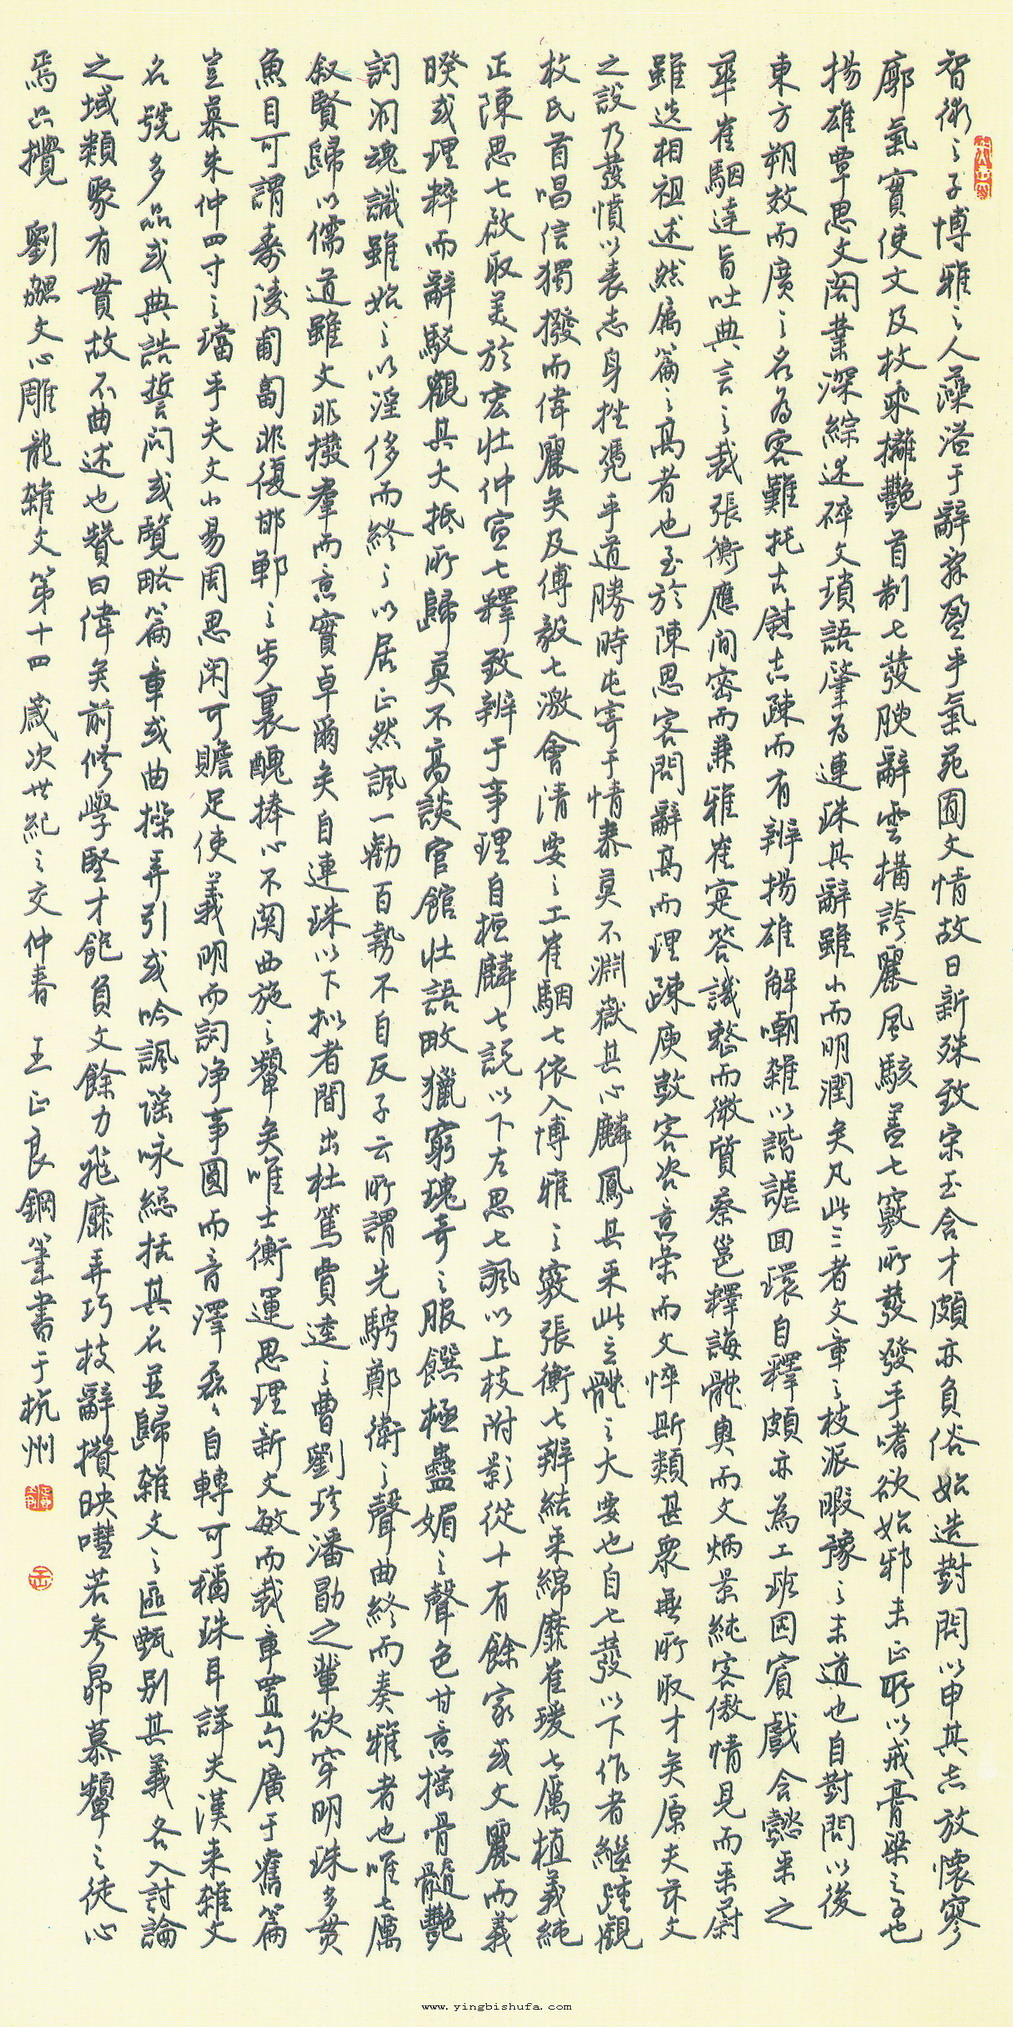 智術之子博雅之人藻溢于辭辭盈乎氣苑囿文情故日新殊致宋玉含才頗亦負俗始造對問以申其志放懷寥
廓氣實使文及枚乘攡艷首制七發腴辭雲構誇麗風駭蓋七竅所發發乎嗜欲始邪末正所以戒膏粱之子也
揚雄覃思文闊業深綜述碎文瑣語肇為連珠其辭雖小而明潤矣凡此三者文章之枝派暇豫之末道也自對問以後
東方朔效而廣之名為客難托古慰志疎而有辨揚雄解嘲雜以諧謔回環自釋頗亦為工班固賓戲含懿采之
華崔駰達旨吐典言之裁張衡應間密而兼雅崔寔答譏整而微質蔡邕釋誨體奧而文炳景純客傲情見而采蔚
雖迭相祖述然屬篇之高者也至於陳思客問辭高而理疎庾敳客咨意榮而文悴斯類甚眾無所取才矣原夫茲文
之設乃發憤以表志身挫憑乎道勝時屯寄于情泰莫不淵嶽其心麟鳳其采此立體之大要也自七發以下作者繼踵觀
枚氏首唱信獨撥而偉麗矣及傅毅七激會清要之工崔駰七依入博雅之竅張衡七辨結采綿靡崔瑗七厲植義純
正陳思七啟取美於宏壯仲宣七釋致辨于事理自桓麟七說以下左思七諷以上枝附影從十有餘家或文麗而義
暌或理粹而辭駁觀其大抵所歸莫不高談官館壯語畋獵窮瑰奇之服饌極蠱媚之聲色甘意搖骨髓艷
詞洞魂識雖始之以淫侈而終之以居正然諷一勸百勢不自反子云所謂先騁鄭衛之聲曲終而奏雅者也唯七厲
叙賢歸以儒道雖文非撥羣而意實卓爾矣自連珠以下拟者間出杜篤賈逵之曹劉珍潘勗之輩欲穿明珠多贯
魚目可謂壽淩匍匐非復邯鄲之步裏醜捧心不関西施之顰矣唯士衡運思理新文敏而裁章置句廣于舊篇
豈慕朱仲四寸之璫乎夫文小易周思闲可贍足使義明而詞净事圓而音澤磊磊自轉可稱珠耳詳夫漢来雜文
名號多品或典誥誓问或覽略篇章或曲操弄引或吟諷謡咏緫括其名並歸雜文之區甄别其義各入討論
之域類聚有貫故不曲述也贊曰偉矣前修學堅才飽負文餘力飛靡弄巧枝辭攢映嘒若参昴慕顰之徒心
焉只攪 劉勰文心雕龍雜文第十四 歲次世紀之交仲春 王正良鋼筆書于杭州
www.yingbishufa.com